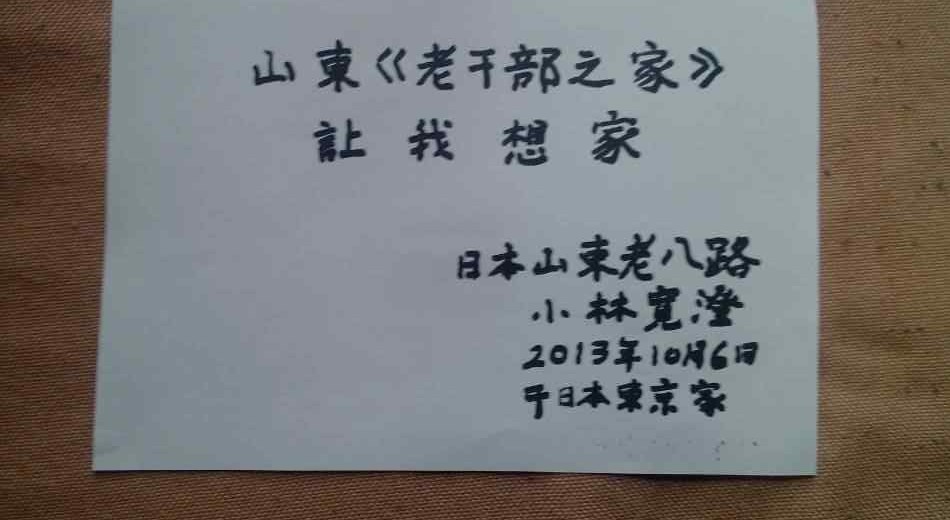 山東《老干部之家》
讓我想家
日本山東老八路
小林寛澄
2013年10月6日
于日本東京家